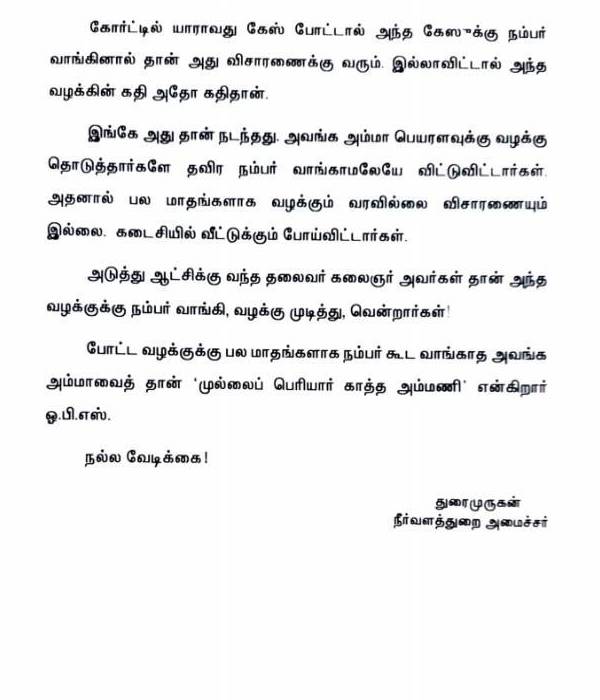 கோர்ட்டில் யாராவது கேஸ் போட்டால் அந்த கேஸுக்கு நம்பர்
வாங்கினால் தான் அது விசாரணைக்கு வரும். இல்லாவிட்டால் அந்த
வழக்கின் கதி அதோ கதிதான்.
இங்கே அது தான் நடந்தது. அவங்க அம்மா பெயரளவுக்கு வழக்கு
தொடுத்தார்களே தவிர நம்பர் வாங்காமலேயே விட்டுவிட்டார்கள்.
அதனால் பல மாதங்களாக வழக்கும் வரவில்லை விசாரணையும்
இல்லை. கடைசியில் வீட்டுக்கும் போய்விட்டார்கள்.
அடுத்து ஆட்சிக்கு வந்த தலைவர் கலைஞர் அவர்கள் தான் அந்த
வழக்குக்கு நம்பர் வாங்கி, வழக்கு முடித்து, வென்றார்கள்!
போட்ட வழக்குக்கு பல மாதங்களாக நம்பர் கூட வாங்காத அவங்க
அம்மாவைத் தான் 'முல்லைப் பெரியார் காத்த அம்மணி' என்கிறார்
ஓ.பி.எஸ்.
நல்ல வேடிக்கை!
துரைமுருகன்
நீர்வளத்துறை அமைச்சர்